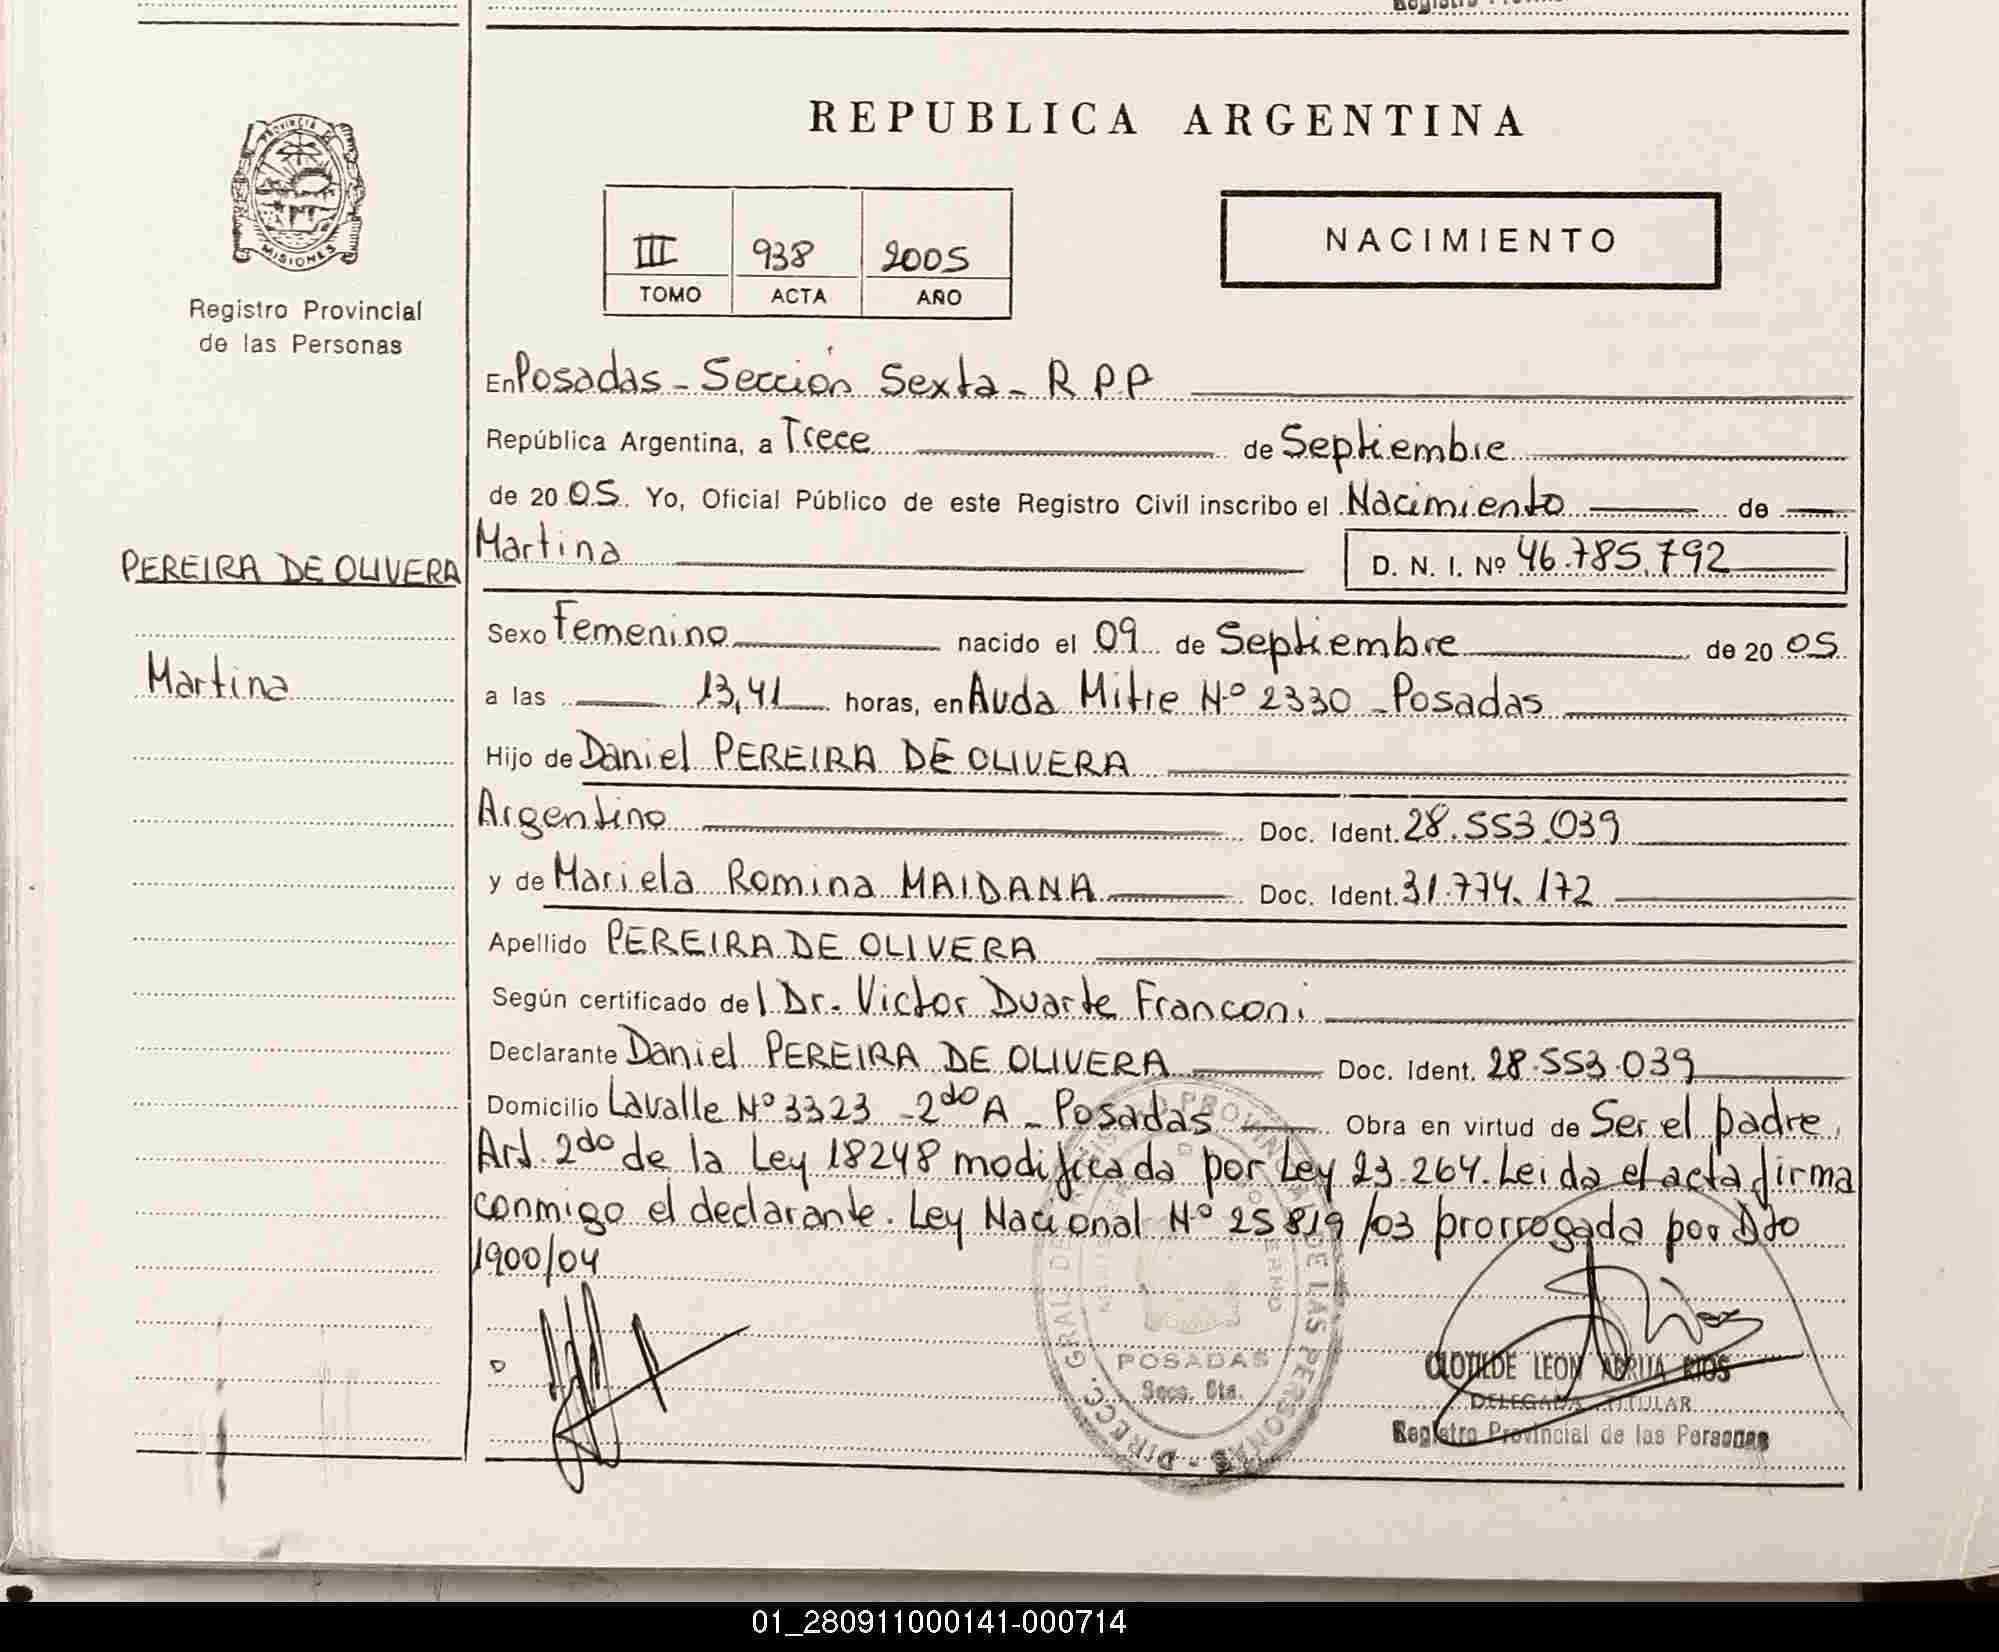 REPUBLICA ARGENTINA
PROVINCIA DE
MISIONES
Registro Provincial
de las Personas
III 938 2005
TOMO ACTA AÑO
NACIMIENTO
En Posadas - Sección Sexta - R P P
República Argentina, a Trece de Septiembre
de 20 05. Yo, Oficial Público de este Registro Civil inscribo el Nacimiento de
Martina D. N. I. Nº 46.785.792
PEREIRA DE OLIVERA
Martina
Sexo Femenino nacido el 09 de Septiembre de 20 05
a las 13,41 horas, en Avda Mitre Nº 2330 - Posadas
Hijo de Daniel PEREIRA DE OLIVERA
Argentino Doc. Ident. 28.553.039
y de Mariela Romina MAIDANA Doc. Ident. 31.774.172
Apellido PEREIRA DE OLIVERA
Según certificado del Dr. Victor Duarte Franconi
Declarante Daniel PEREIRA DE OLIVERA Doc. Ident. 28.553.039
Domicilio Lavalle Nº 3323 - 2do A - Posadas Obra en virtud de Ser el padre,
Art. 2do de la Ley 18248 modificada por Ley 23.264. Leida el acta firma
conmigo el declarante. Ley Nacional Nº 25819/03 prorrogada por Dto
1900/04
DIRECC. GRAL DE REGISTRO PROVINCIAL DE LAS PERSONAS
POSADAS
Secc. 6ta.
CLOTILDE LEON RIOS
DELEGADA TITULAR
Registro Provincial de las Personas
01_280911000141-000714